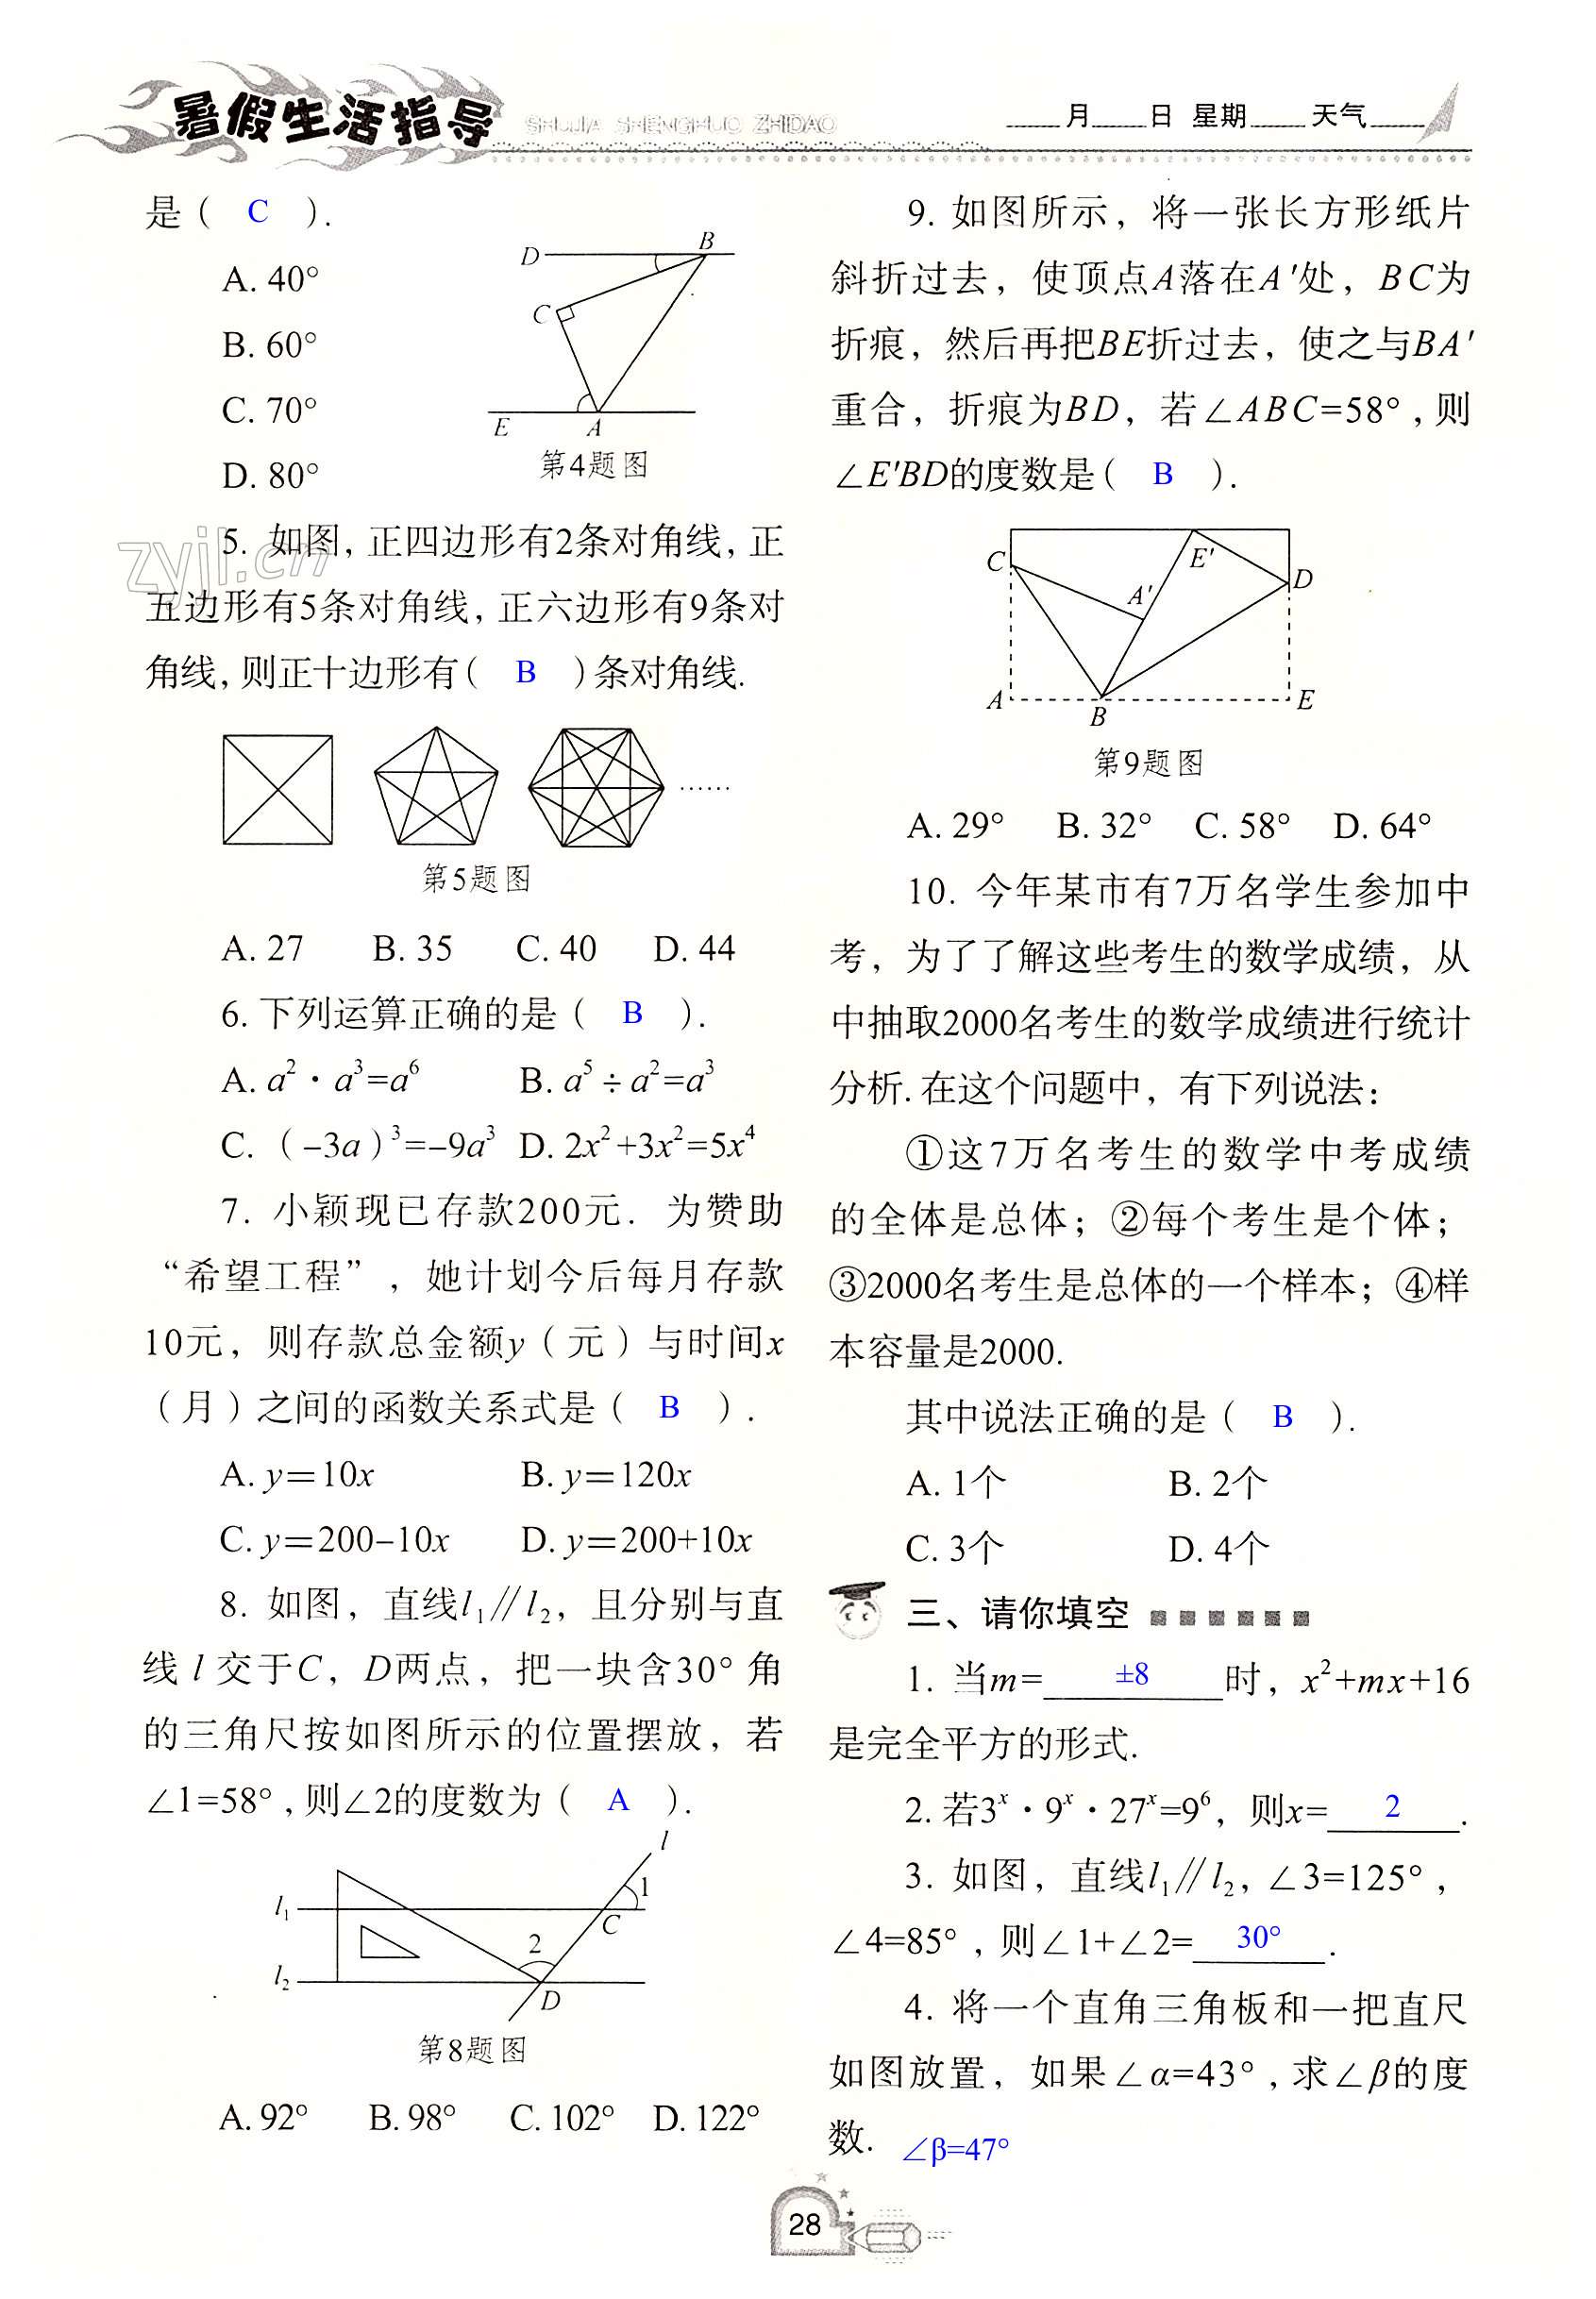 暑假生活指导 SHUJIA SHENGHUO ZHIDAO ____月____日 星期____天气____
是( C ).
A. 40°
B. 60°
C. 70°
D. 80°
D B
C
E A
第4题图
zyjl.cn
5. 如图, 正四边形有2条对角线, 正
五边形有5条对角线, 正六边形有9条对
角线, 则正十边形有( B )条对角线.
……
第5题图
A. 27 B. 35 C. 40 D. 44
6. 下列运算正确的是( B ).
A. a²·a³=a⁶ B. a⁵÷a²=a³
C. (-3a)³=-9a³ D. 2x²+3x²=5x⁴
7. 小颖现已存款200元. 为赞助
“希望工程”, 她计划今后每月存款
10元, 则存款总金额y(元)与时间x
(月)之间的函数关系式是( B ).
A. y=10x B. y=120x
C. y=200-10x D. y=200+10x
8. 如图, 直线l₁∥l₂, 且分别与直
线 l 交于C, D两点, 把一块含30°角
的三角尺按如图所示的位置摆放, 若
∠1=58°, 则∠2的度数为( A ).
l
l₁ C 1
2
l₂ D
第8题图
A. 92° B. 98° C. 102° D. 122°
9. 如图所示, 将一张长方形纸片
斜折过去, 使顶点A落在A′处, BC为
折痕, 然后再把BE折过去, 使之与BA′
重合, 折痕为BD, 若∠ABC=58°, 则
∠E′BD的度数是( B ).
C E′ D
A′
A B E
第9题图
A. 29° B. 32° C. 58° D. 64°
10. 今年某市有7万名学生参加中
考, 为了了解这些考生的数学成绩, 从
中抽取2000名考生的数学成绩进行统计
分析. 在这个问题中, 有下列说法:
①这7万名考生的数学中考成绩
的全体是总体; ②每个考生是个体;
③2000名考生是总体的一个样本; ④样
本容量是2000.
其中说法正确的是( B ).
A. 1个 B. 2个
C. 3个 D. 4个
三、请你填空
1. 当m= ±8 时, x²+mx+16
是完全平方的形式.
2. 若3ˣ·9ˣ·27ˣ=9⁶, 则x= 2 .
3. 如图, 直线l₁∥l₂, ∠3=125°,
∠4=85°, 则∠1+∠2= 30° .
4. 将一个直角三角板和一把直尺
如图放置, 如果∠α=43°, 求∠β的度
数. ∠β=47°
28